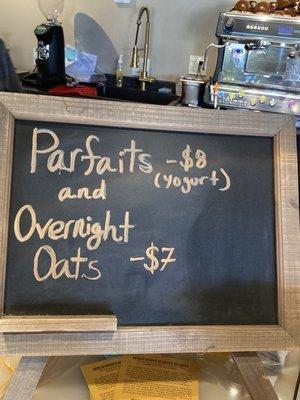 Parfaits -$8
(yogurt)
and
Overnight
Oats -$7